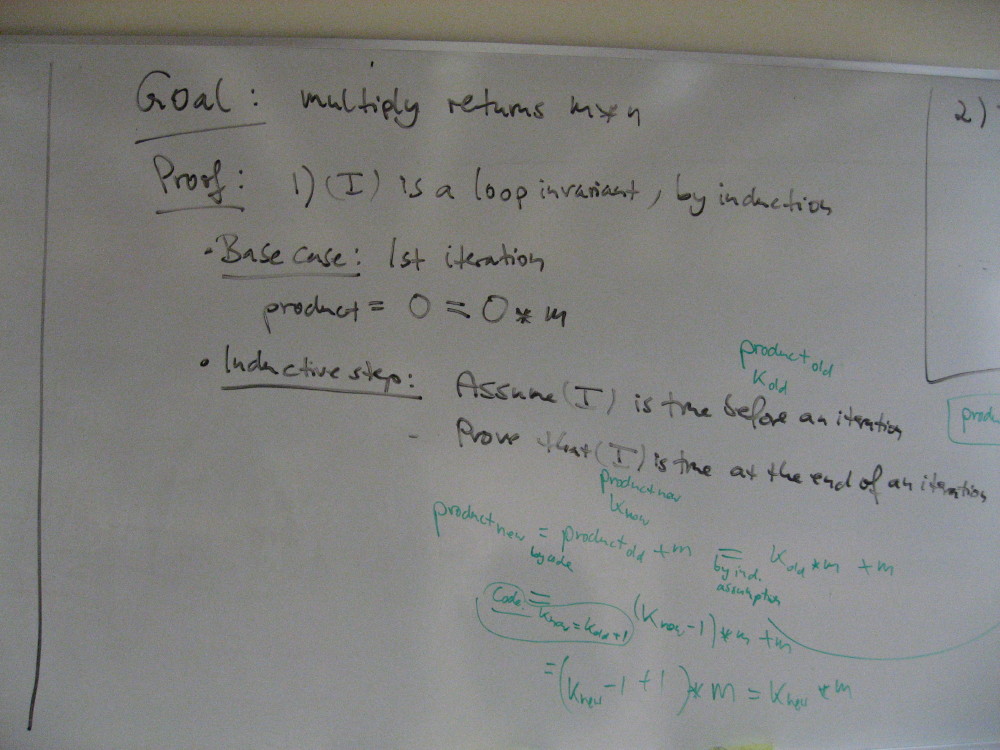 Goal: multiply returns m*n
2)
Proof: 1) (I) is a loop invariant, by induction
• Base case: 1st iteration
product = 0 = 0 * m
product old
k old
• Inductive step: Assume (I) is true before an iteration
produ
- Prove that (I) is true at the end of an iteration
product new
k new
product new = product old + m = k old * m + m
by code
by ind. assumption
Code: = (k new - 1) * m + m
k new = k old + 1
= (k new - 1 + 1) * m = k new * m